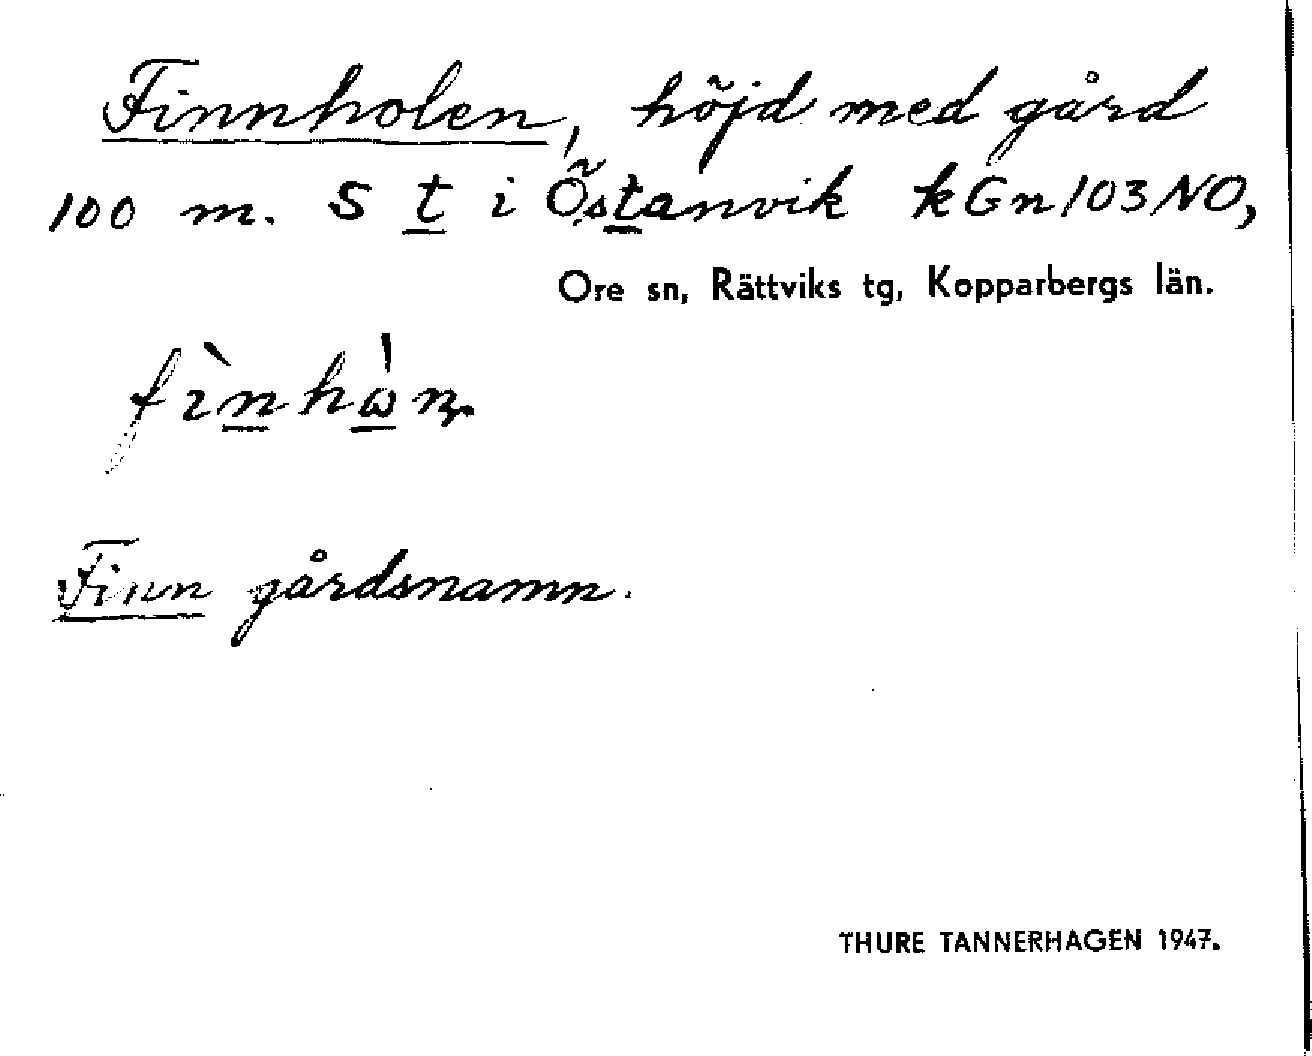 Finnholen, höjd med gård
100 m. S t i Östanvik kGn103NO,
Ore sn, Rättviks tg, Kopparbergs län.
Finn gårdsnamn.
THURE TANNERHAGEN 1947.